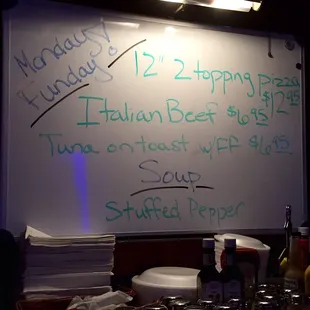 Monday!
Funday
12" 2 topping pizza
$12.95
Italian Beef $6.95
Tuna on toast w/FF $6.95
Soup
Stuffed Pepper